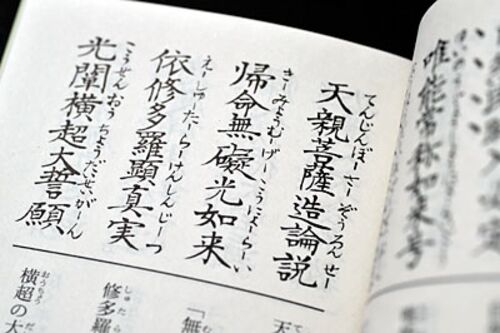 唯能常称如来号
てんじんぼーさーぞうろんせー
天親菩薩造論説
きーみょうむーげーこうにょーらーい
帰命無礙光如来
えーしゅーたーらーけんしんじーつ
依修多羅顕真実
こうせんおうちょうだいせいがーん
光闡横超大誓願
天
「無
しゅたら
修多羅
おうちょう
横超の大